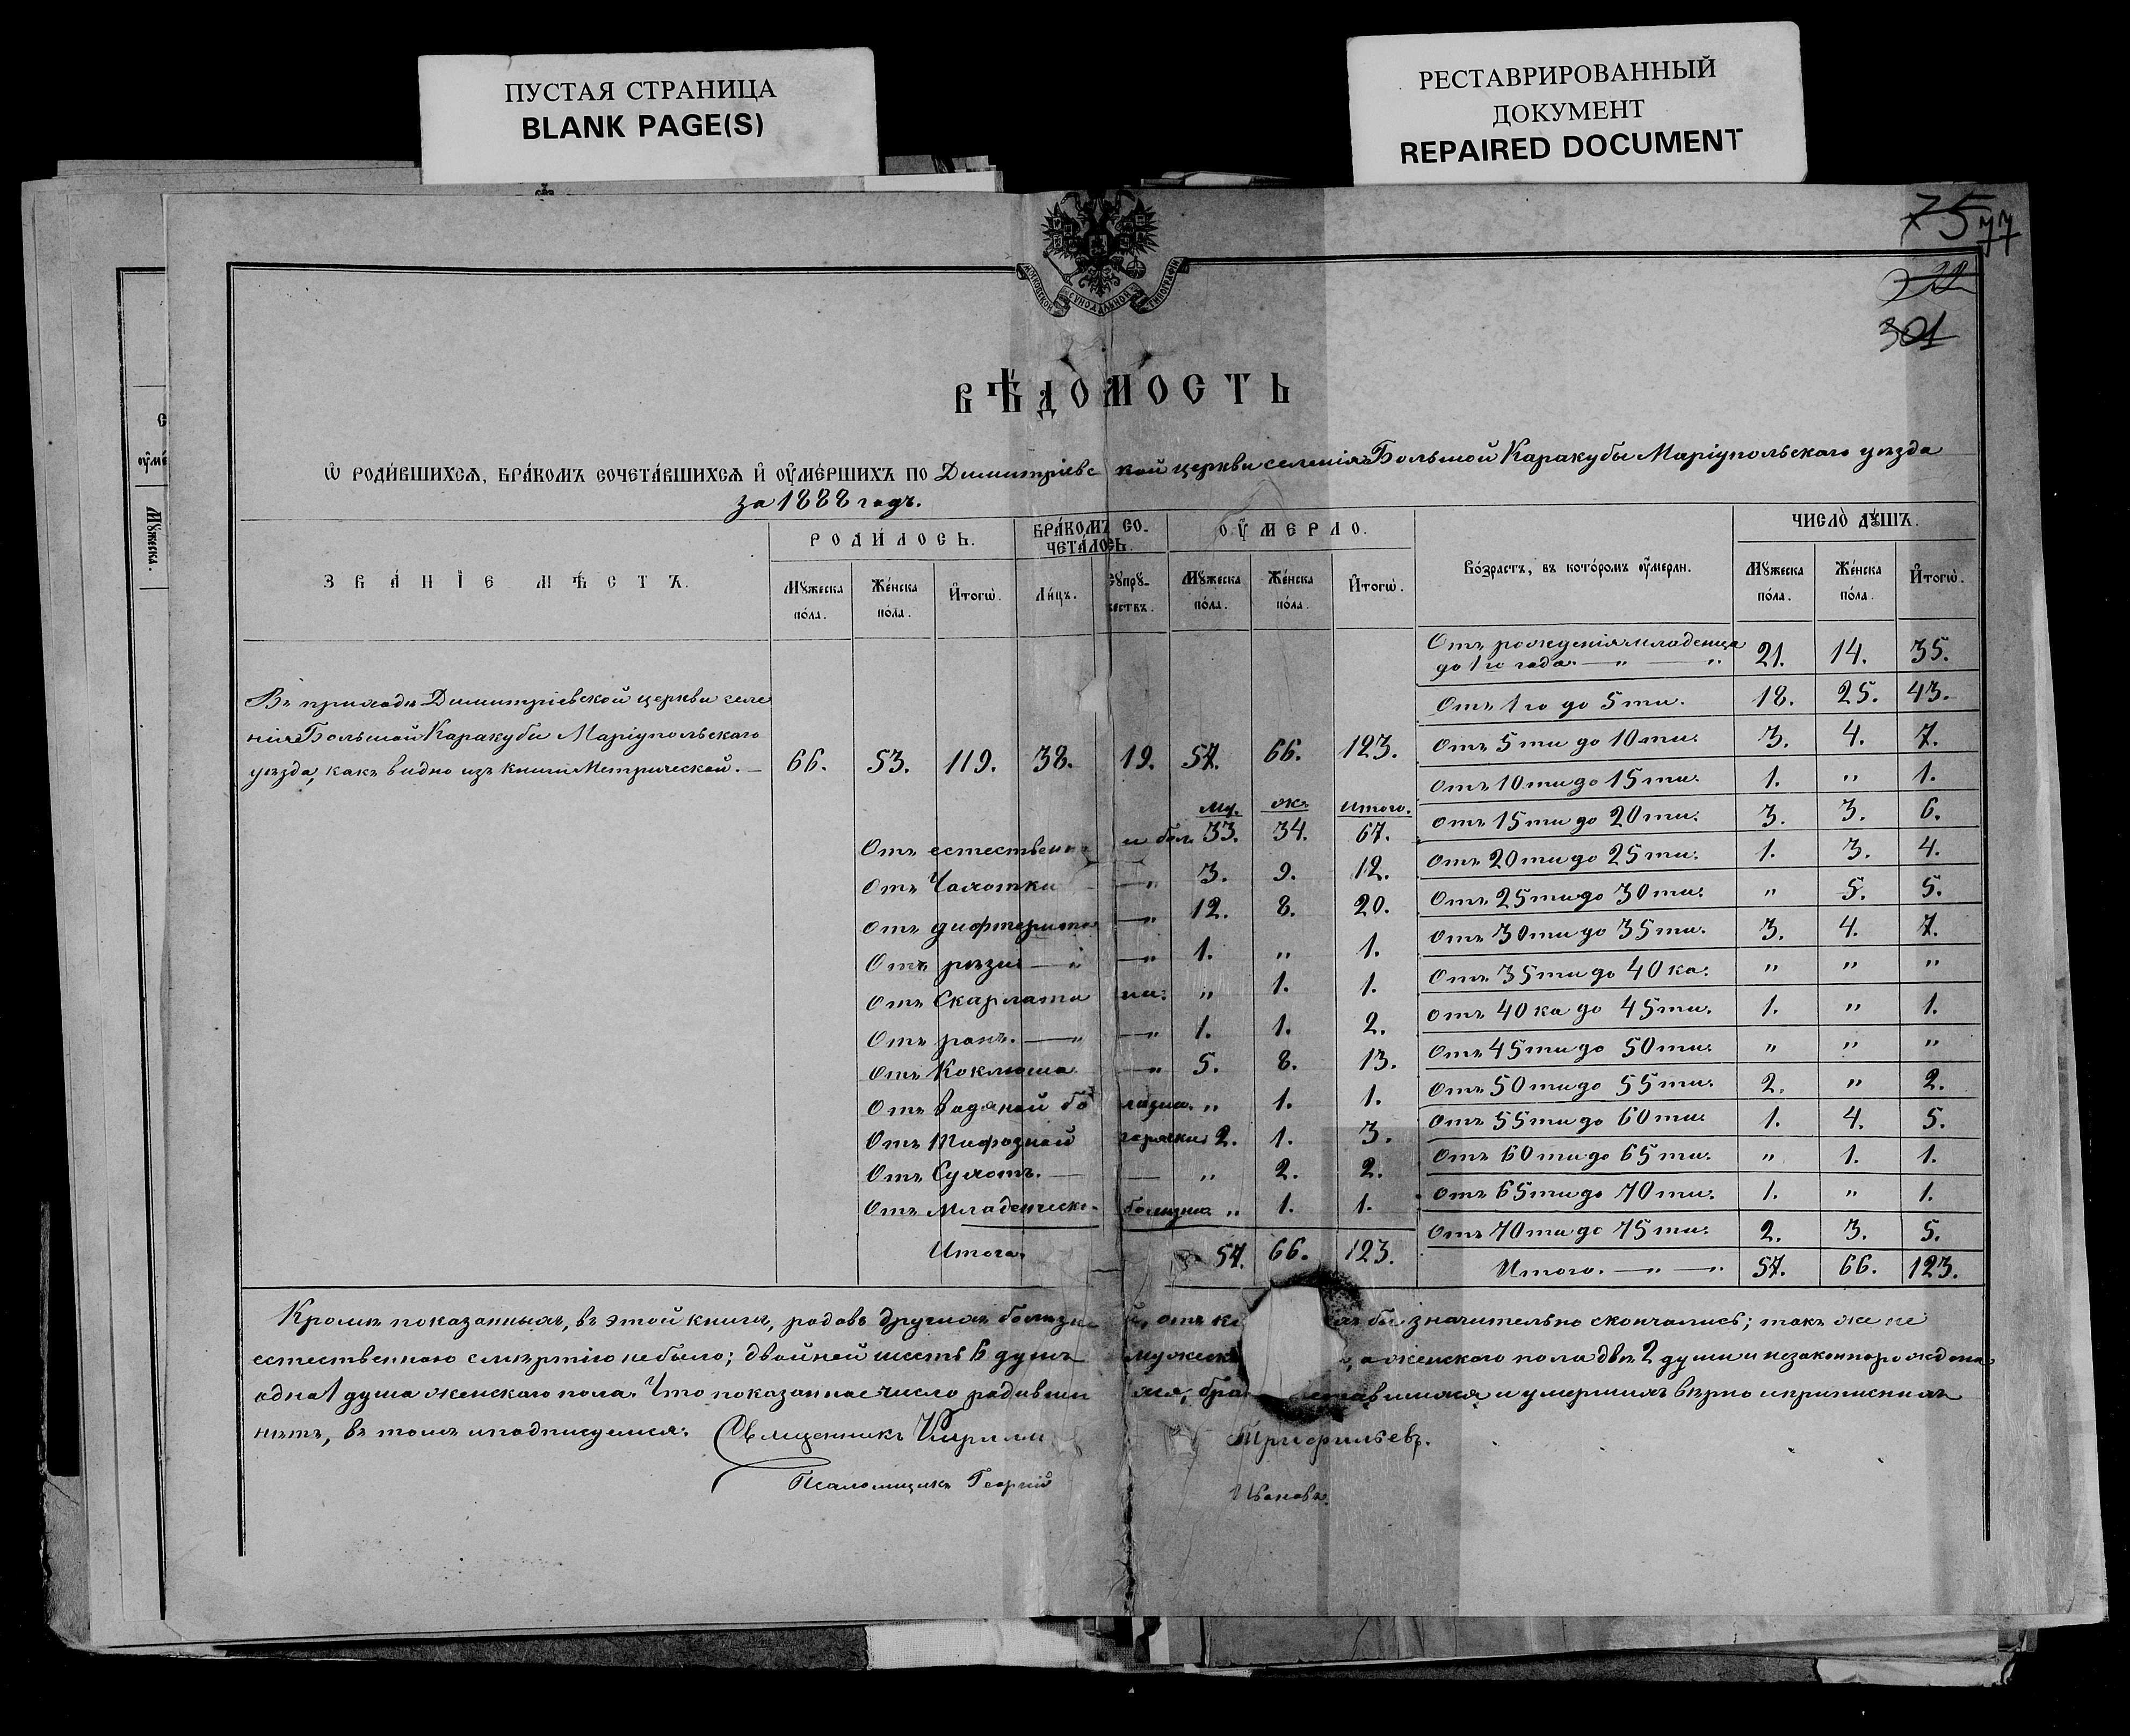 ПУСТАЯ СТРАНИЦА
BLANK PAGE(S)
РЕСТАВРИРОВАННЫЙ
ДОКУМЕНТ
REPAIRED DOCUMENT
75 77
22
301
ВѢДОМОСТЬ
Ѡ РОДИ́ВШИХСЯ, БРА́КОМЪ СОЧЕТА́ВШИХСЯ И҆ ОУ҆МЕ́РШИХЪ ПО Димитріевс кой церкви селенія Большой Каракубы Маріупольскаго уѣзда
за 1888 годъ.
ЗВА́НІЕ МѢ́СТЪ.
РОДИ́ЛОСЬ.
БРА́КОМЪ СО-
ЧЕТА́ЛОСЬ.
ОУ҆МЕРЛО.
Во́зрастъ, въ кото́ромъ оу҆́мерли.
ЧИСЛО̀ ДꙊШЪ.
Мꙋ́жеска по́ла. Же́нска по́ла. И҆того̀. Ли́цъ. Сꙋпрꙋ́жествъ. Мꙋ́жеска по́ла. Же́нска по́ла. И҆того̀. Мꙋ́жеска по́ла. Же́нска по́ла. И҆того̀.
Въ приходѣ Димитріевской церкви селе
нія Большой Каракубы Маріупольскаго
уѣзда, какъ видно изъ книги Метрической. — 66. 53. 119. 38. 19. 57. 66. 123.
му. же. итого.
Отъ естественн и бол. 33. 34. 67.
Отъ Чахотки — „ 3. 9. 12.
Отъ дифтерита — „ 12. 8. 20.
Отъ рѣзи — „ — „ 1. „ 1.
Отъ Скарлати ны. „ 1. 1.
Отъ ранъ. — „ — „ 1. 1. 2.
Отъ Коклюша — „ 5. 8. 13.
Отъ водяной бо лѣзни. „ 1. 1.
Отъ Тифозной горячки 2. 1. 3.
Отъ Сухотъ. — — „ 2. 2.
Отъ Младенческ. болѣзни „ 1. 1.
Итого. 57. 66. 123.
Отъ рожденія младенца
до 1го года. — „ — „ 21. 14. 35.
Отъ 1го до 5ти. 18. 25. 43.
Отъ 5ти до 10ти. 3. 4. 7.
Отъ 10ти до 15ти. 1. „ 1.
Отъ 15ти до 20ти. 3. 3. 6.
Отъ 20ти до 25ти. 1. 3. 4.
Отъ 25ти до 30ти. „ 5. 5.
Отъ 30ти до 35ти. 3. 4. 7.
Отъ 35ти до 40ка. „ „ „
Отъ 40ка до 45ти. 1. „ 1.
Отъ 45ти до 50ти. „ „ „
Отъ 50ти до 55ти. 2. „ 2.
Отъ 55ти до 60ти. 1. 4. 5.
Отъ 60ти до 65ти. „ 1. 1.
Отъ 65ти до 70ти. 1. „ 1.
Отъ 70ти до 75ти. 2. 3. 5.
Итого. — „ — „ 57. 66. 123.
Кромѣ показанныхъ, въ этой книгѣ, родовъ другихъ болѣзне й, отъ к хъ бы значительно скончались; такъ же не
естественною смертію не было; двойней шесть 6 душъ мужеск , а женскаго пола двѣ 2 души и незаконнорожденна
одна 1 душа женскаго пола. Что показанное число родивши хся, бра етавшихся и умершихъ вѣрно и приписныхъ
нѣтъ, въ томъ и подписуемся: Священникъ Кирилл Трифильевъ.
Псаломщикъ Георгій Ивановъ.